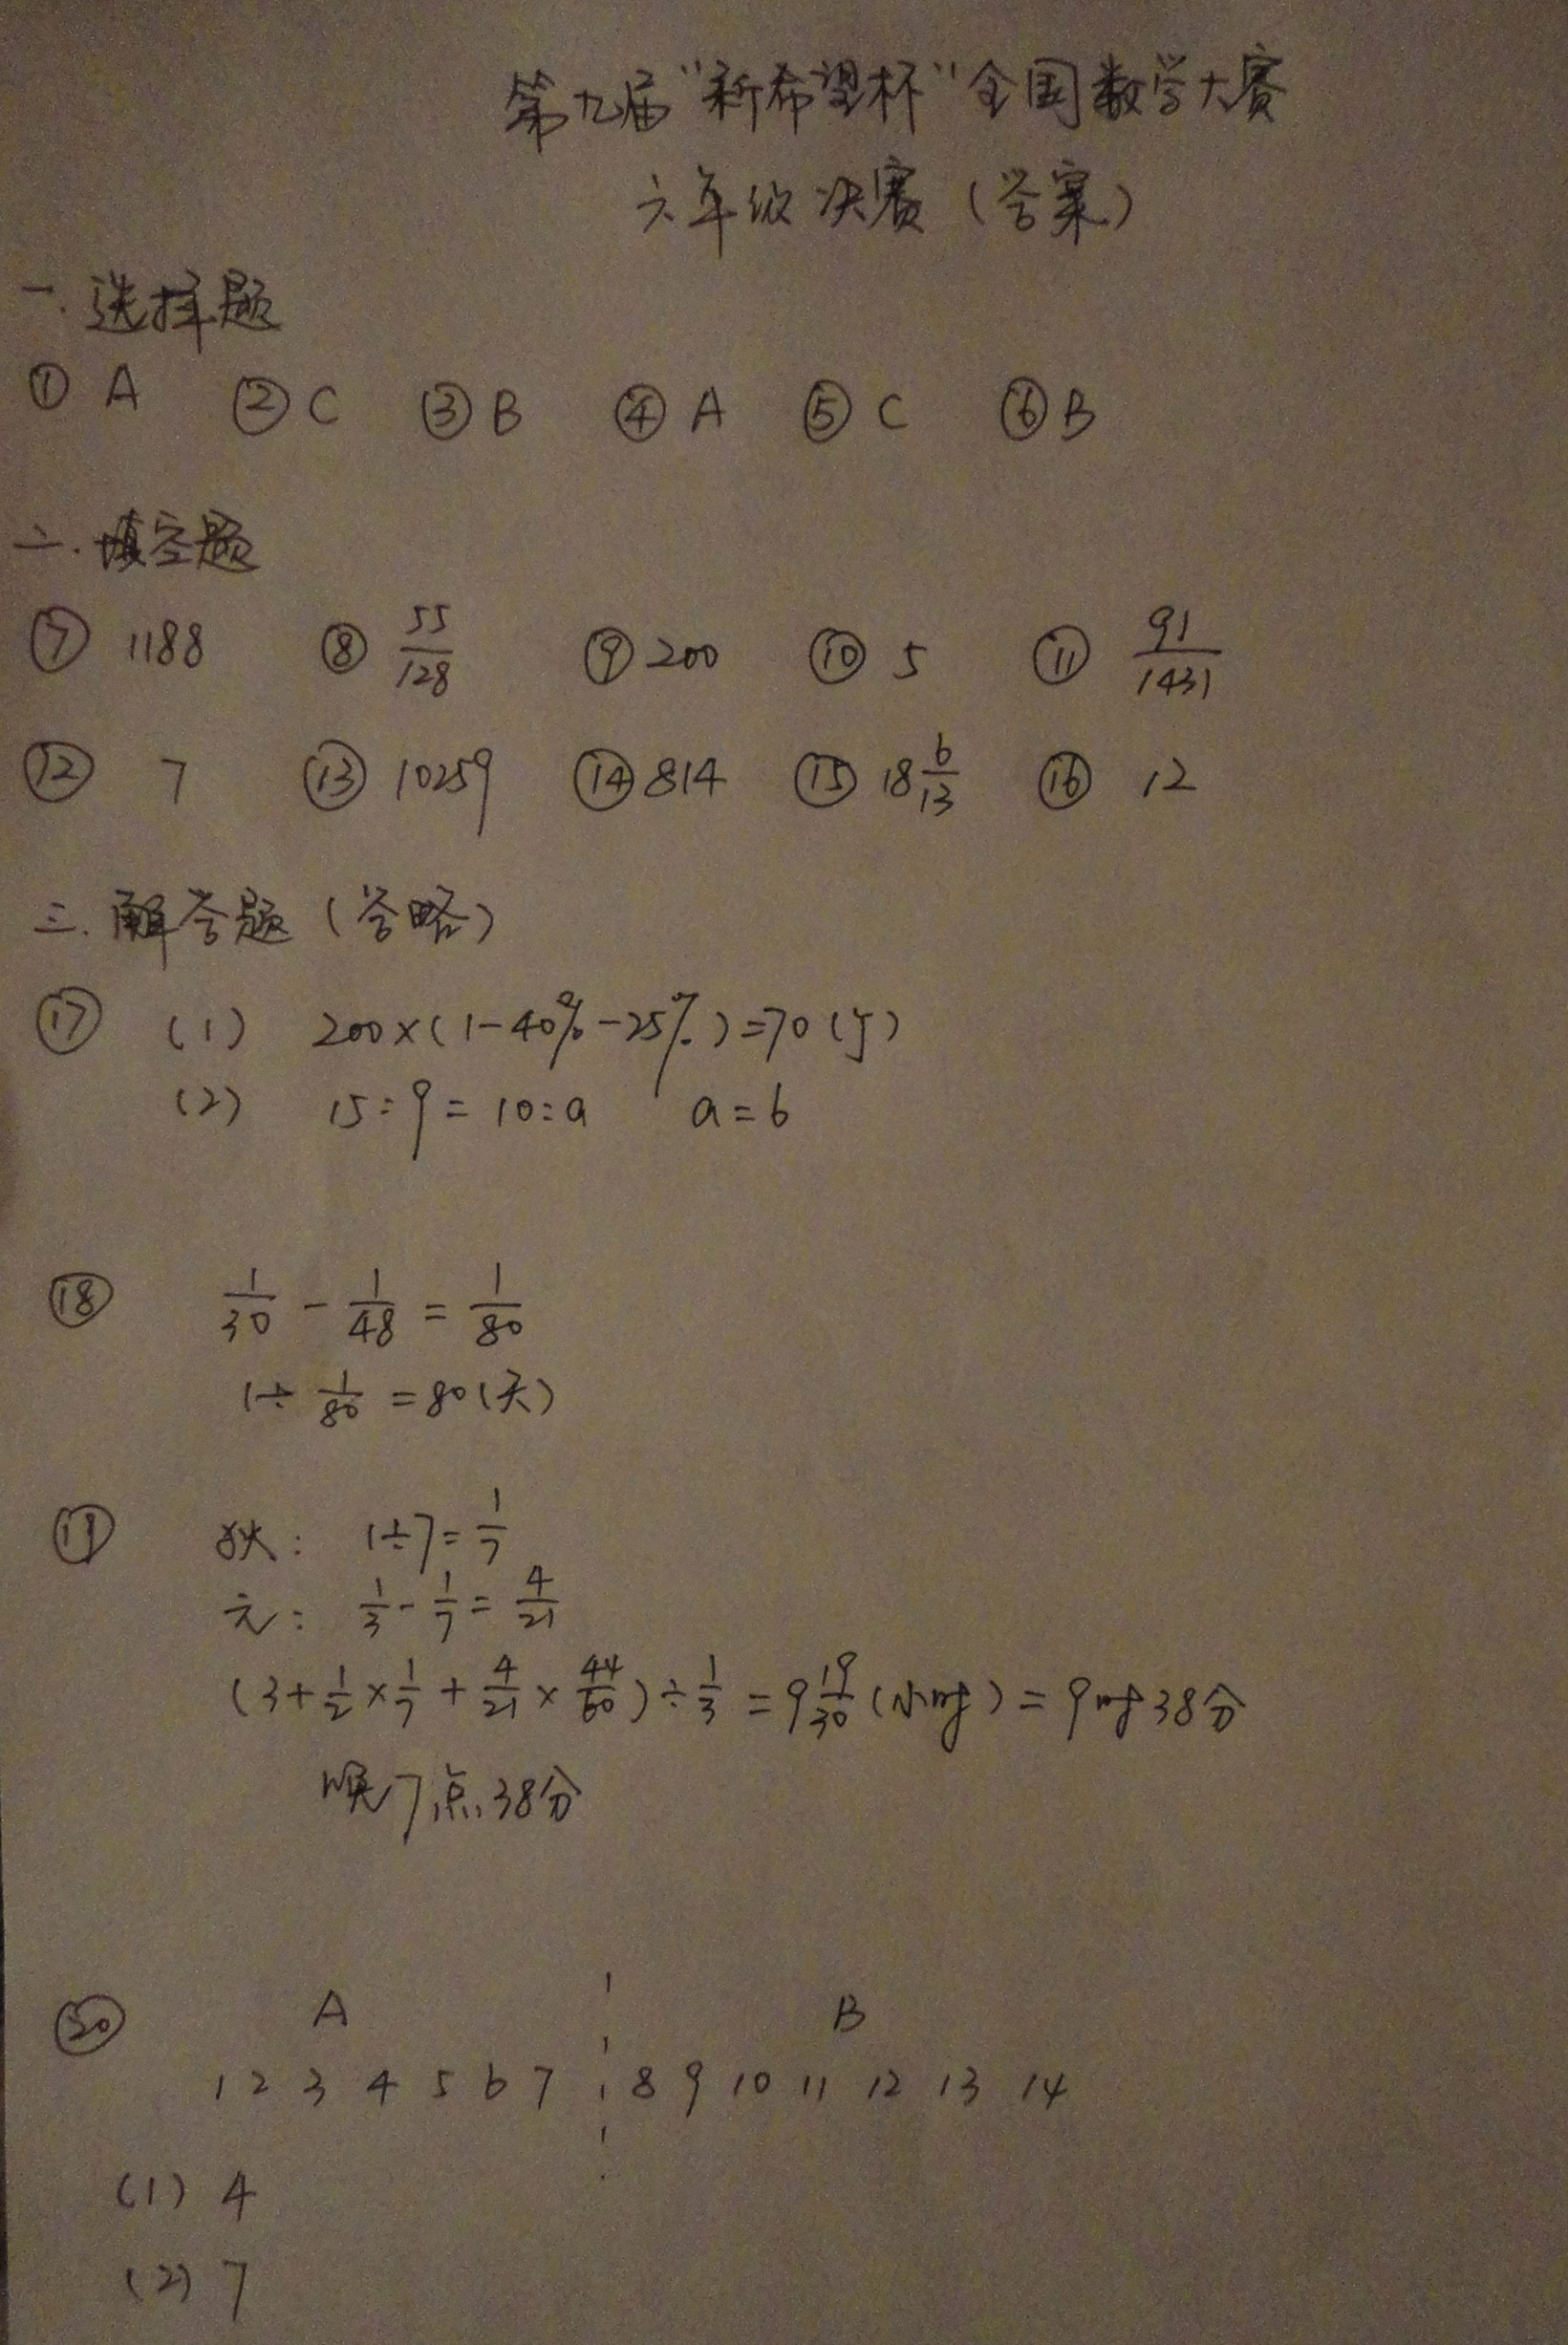 第九届“新希望杯”全国数学大赛
六年级决赛（答案）
一.选择题
① A ② C ③ B ④ A ⑤ C ⑥ B
二.填空题
⑦ 1188 ⑧ 55/128 ⑨ 200 ⑩ 5 ⑪ 91/1431
⑫ 7 ⑬ 10259 ⑭ 814 ⑮ 18 6/13 ⑯ 12
三.解答题（答略）
⑰ (1) 200×(1-40%-25%)=70(万)
(2) 15:9=10:a a=6
⑱ 1/30 - 1/48 = 1/80
1÷1/80=80(天)
⑲ 狄: 1÷7=1/7
元: 1/3-1/7=4/21
(3+1/2×1/7+4/21×44/60)÷1/3=9 19/30(小时)=9时38分
晚7点38分
⑳ A B
1 2 3 4 5 6 7 8 9 10 11 12 13 14
(1) 4
(2) 7